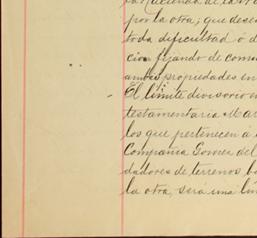 por la otra; que dese
toda dificultad o d
cion fijando de com
ambas propiedades en
El límite divisorio e
testamentaria
los que pertenecen a
Compañia Gomez del
dadores de terrenos b
la otra, será una lín